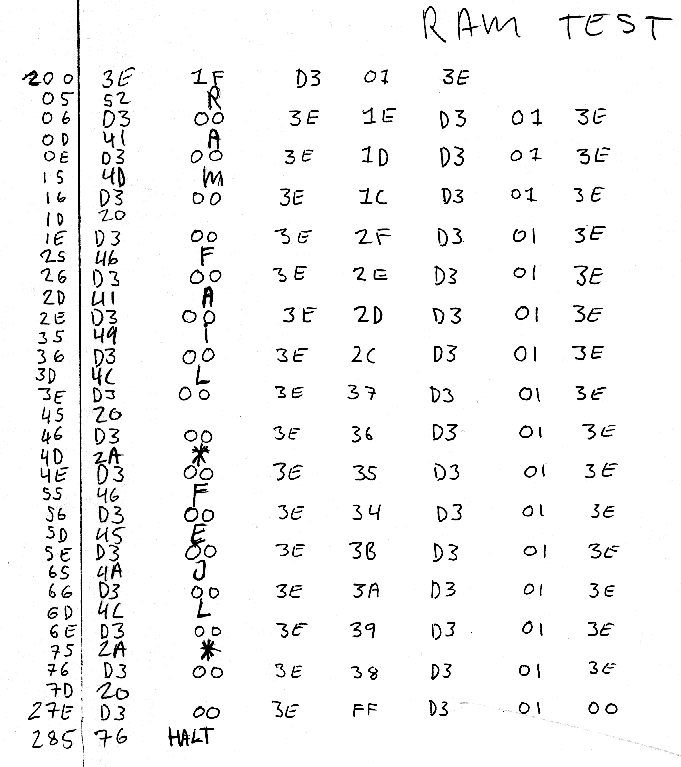 RAM TEST
200 3E 1F D3 01 3E
05 52 R
06 D3 00 3E 1E D3 01 3E
0D 41 A
0E D3 00 3E 1D D3 01 3E
15 4D M
16 D3 00 3E 1C D3 01 3E
1D 20
1E D3 00 3E 2F D3 01 3E
25 46 F
26 D3 00 3E 2E D3 01 3E
2D 41 A
2E D3 00 3E 2D D3 01 3E
35 49 I
36 D3 00 3E 2C D3 01 3E
3D 4C L
3E D3 00 3E 37 D3 01 3E
45 20
46 D3 00 3E 36 D3 01 3E
4D 2A *
4E D3 00 3E 35 D3 01 3E
55 46 F
56 D3 00 3E 34 D3 01 3E
5D 45 E
5E D3 00 3E 3B D3 01 3E
65 4A J
66 D3 00 3E 3A D3 01 3E
6D 4C L
6E D3 00 3E 39 D3 01 3E
75 2A *
76 D3 00 3E 38 D3 01 3E
7D 20
27E D3 00 3E FF D3 01 00
285 76 HALT